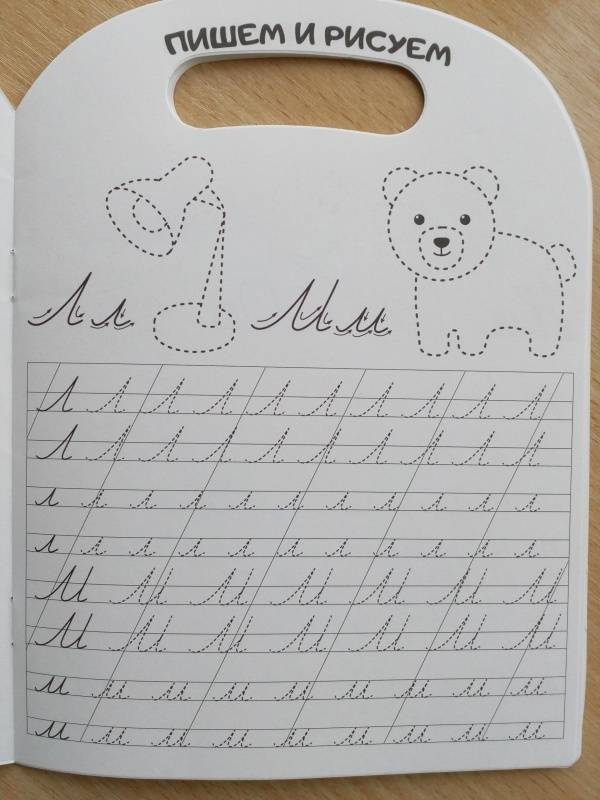 ПИШЕМ И РИСУЕМ
Лл Мм
Л Л Л Л Л Л Л Л Л Л
Л Л Л Л Л Л Л Л Л Л
л л л л л л л л л л л
л л л л л л л л л л л
М М М М М М М
М М М М М М М
м м м м м м м м м
м м м м м м м м м